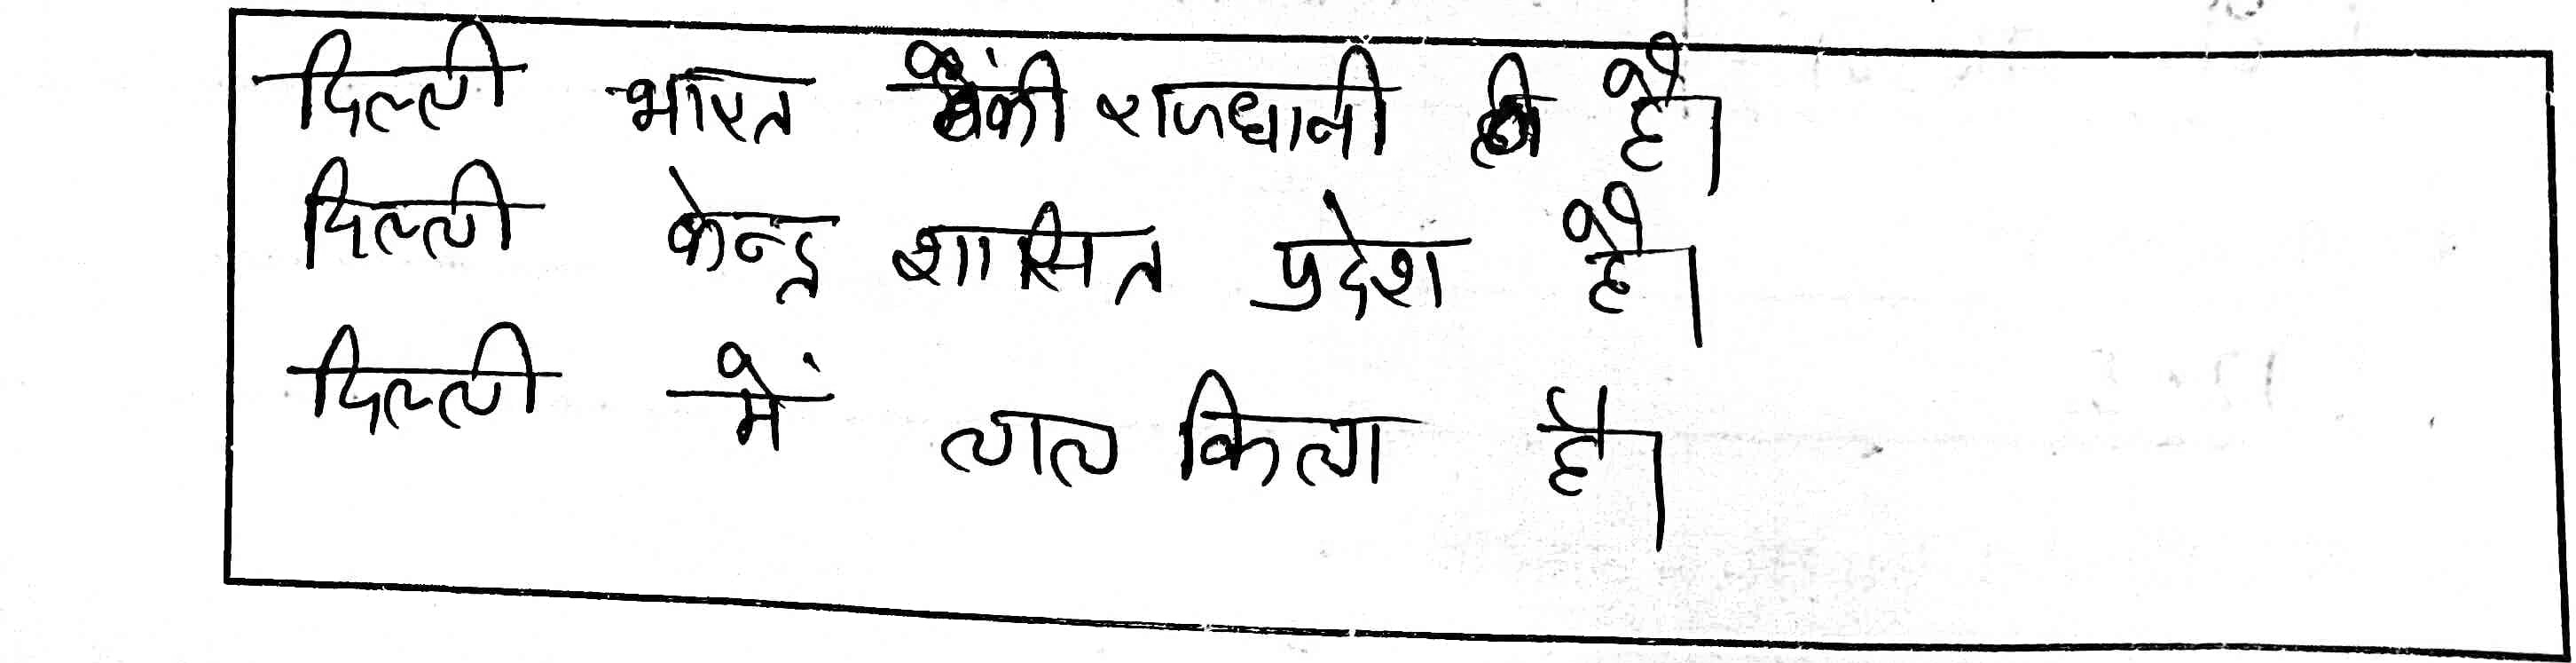 दिल्ली भारत की राजधानी है।
दिल्ली केन्द्र शासित प्रदेश है।
दिल्ली में लाल किला है।